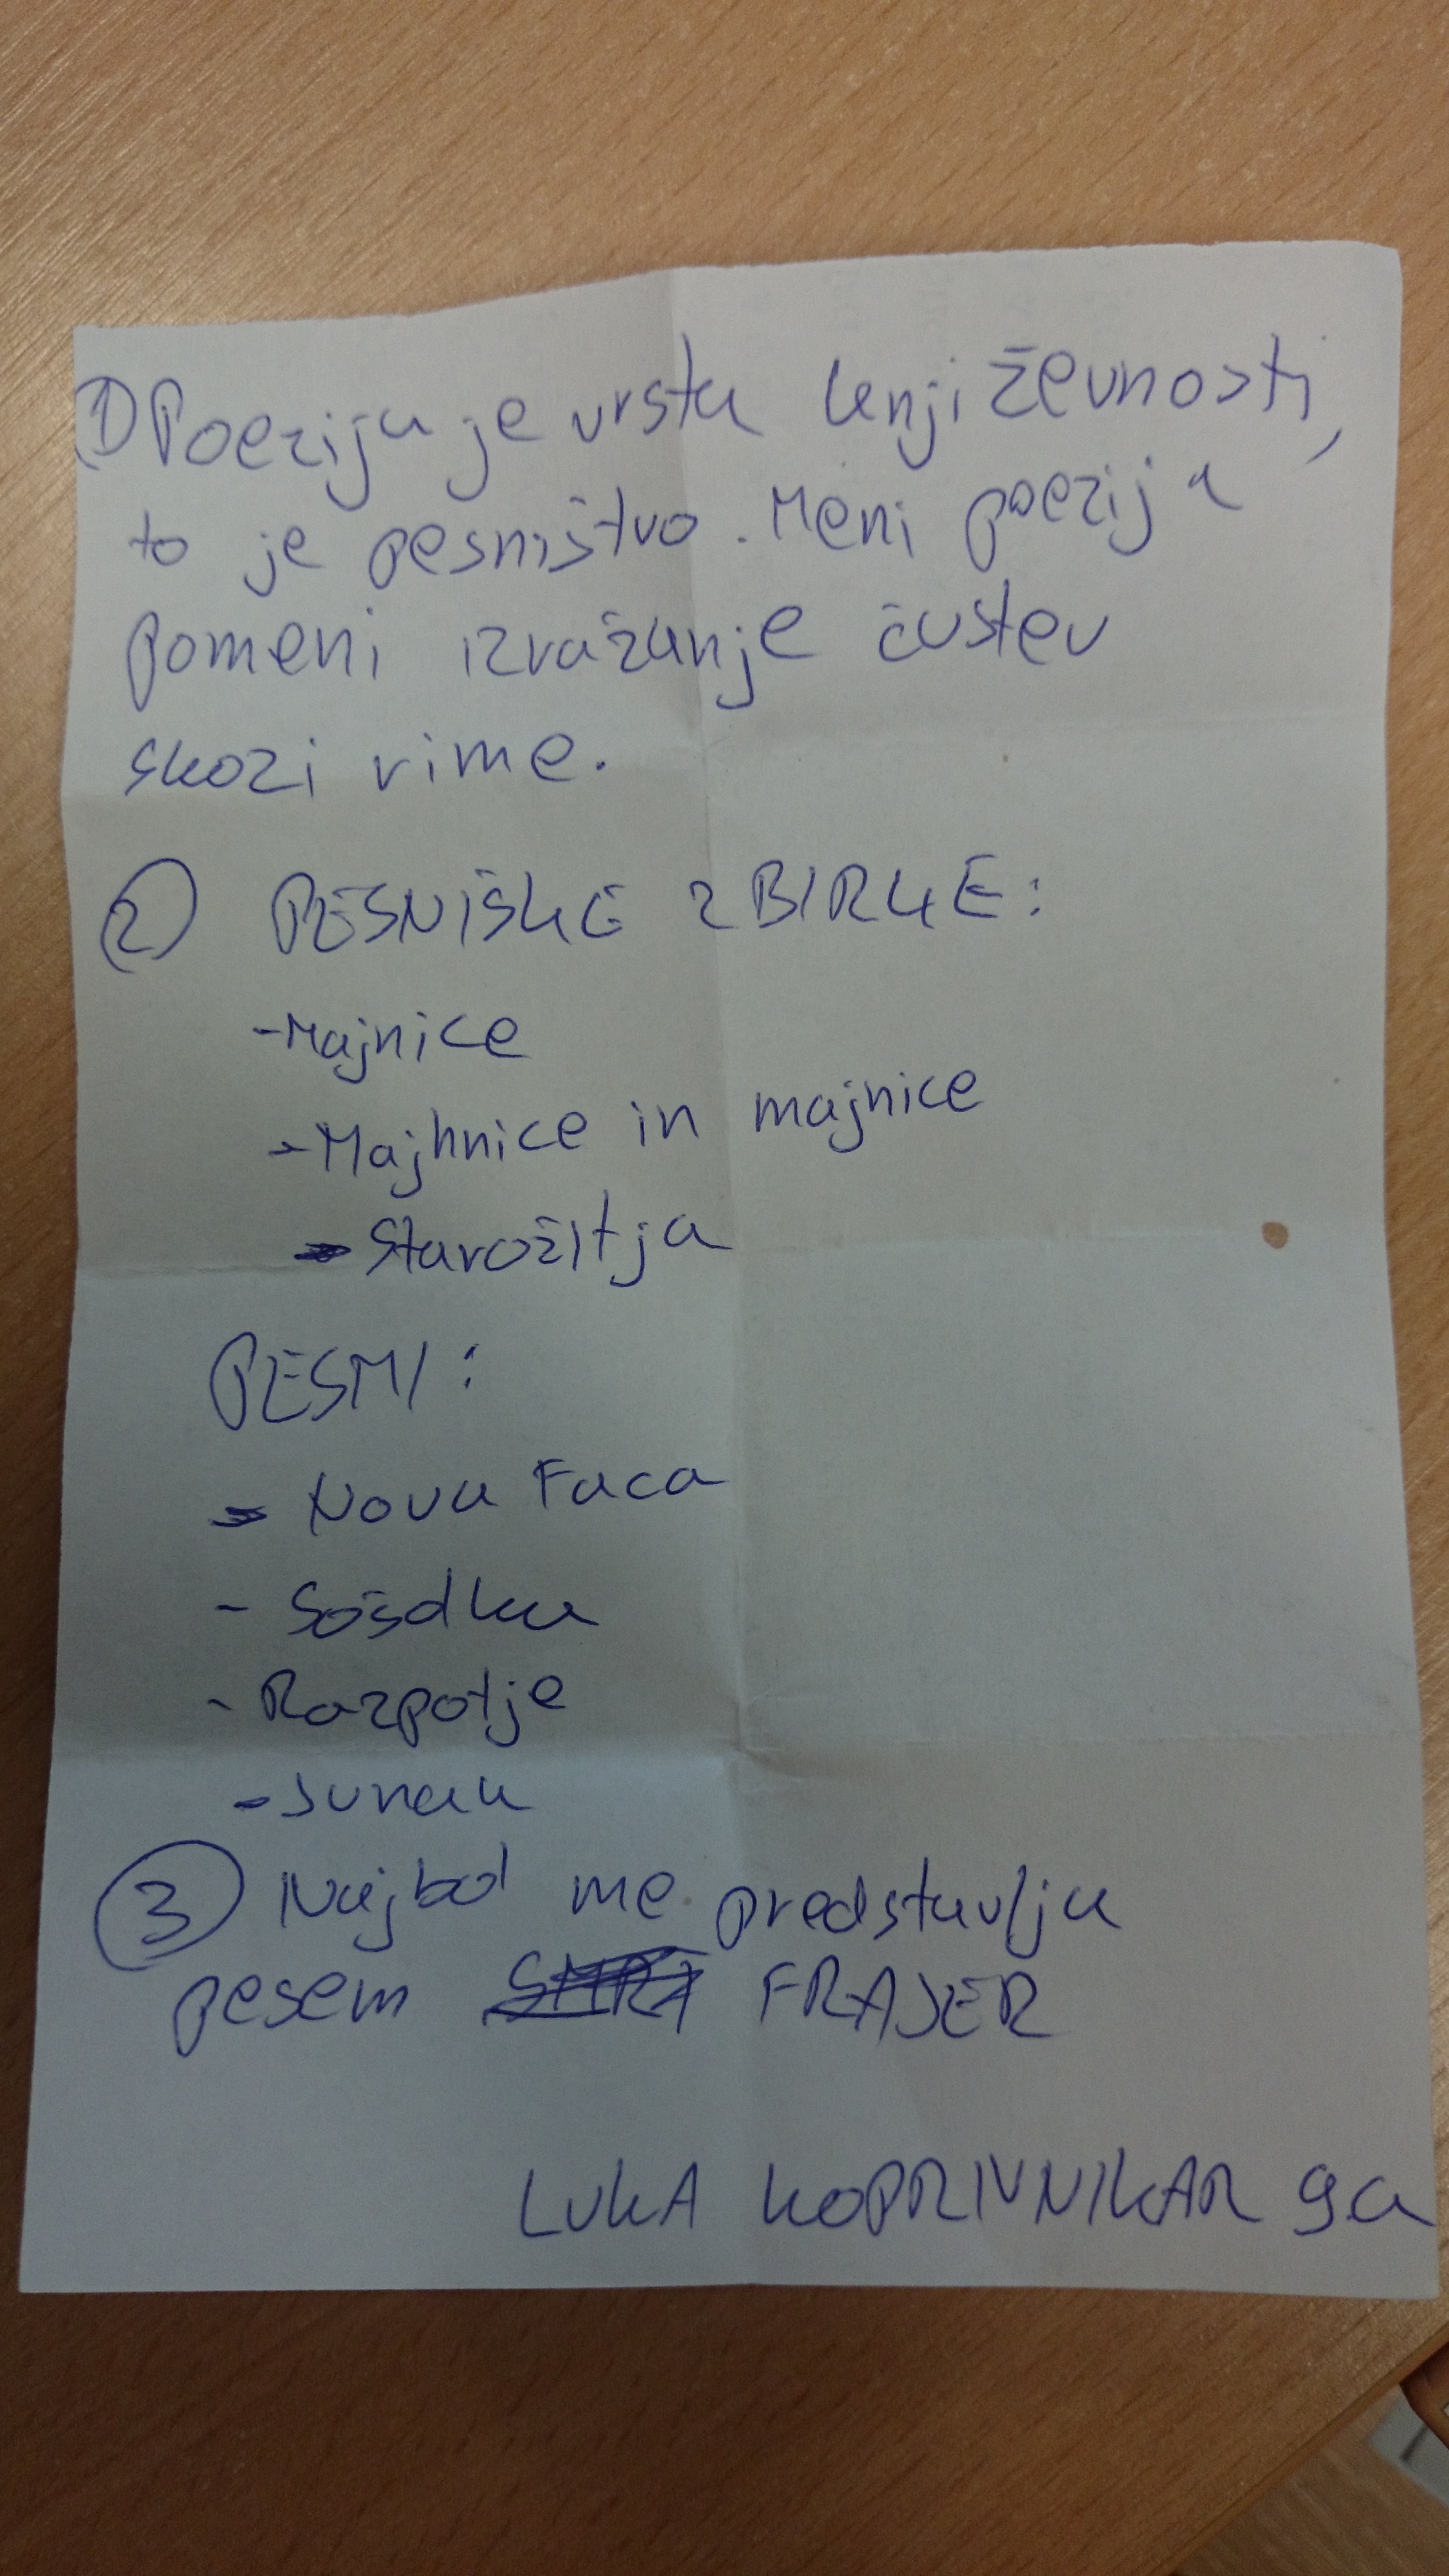 ① Poezija je vrsta književnosti,
to je pesništvo. Meni poezija
pomeni izražanje čustev
skozi rime.
② PESNIŠKE ZBIRKE:
- Majnice
- Majhnice in majnice
- Starožitja
PESMI:
- Nova Faca
- Sošdka
- Razpotje
- Junak
③ Najbol me predstavlja
pesem FRAJER
LUKA KOPRIVNIKAR 9.a